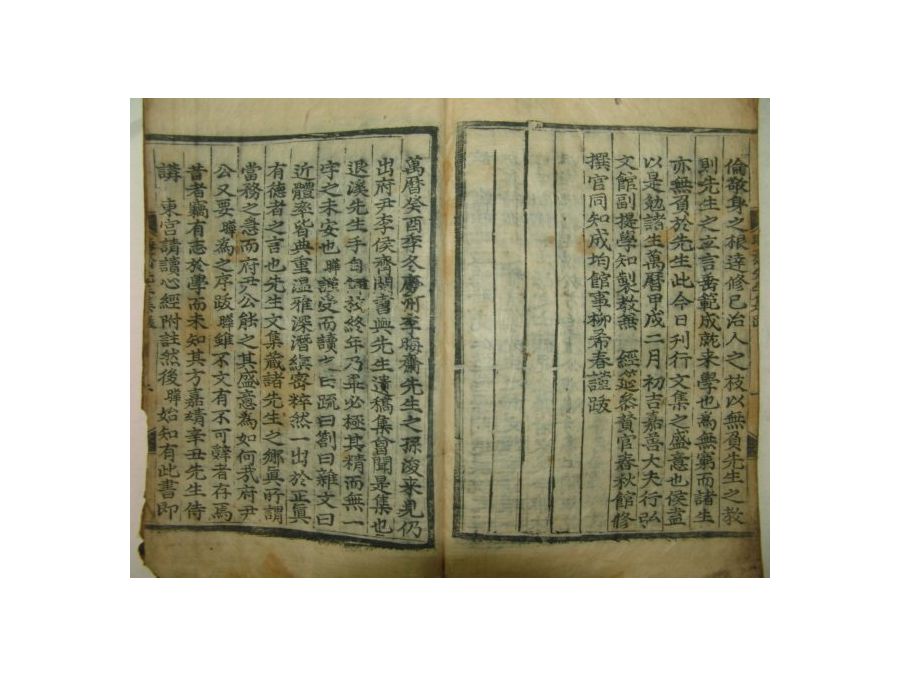 倫敬身之根達修己治人之枝以無負先生之敎
則先生之立言垂範成就来學也爲無窮而諸生
亦無負於先生此今日刊行文集之盛意也侯盍
以是勉諸生萬曆甲戌二月初吉嘉善大夫行弘
文館副提學知製敎兼 經筵叅賛官春秋館修
撰官同知成均館事柳希春謹跋
萬曆癸酉季冬慶州李晦齋先生之孫浚来見仍
出府尹李侯齊閔書與先生遺稿集曾聞是集也
退溪先生手自讎校終年乃畢必極其精而無一
字之未安也曄謹受而讀之曰䟽曰劄曰雜文曰
近體率皆典重温雅深潜縝密粹然一出於正眞
有德者之言也先生文集蔵諸先生之郷眞所謂
當務之急而府尹公能之其盛意爲如何㢤府尹
公又要曄爲之序跋曄雖不文有不可辭者存焉
昔者竊有志於學而未知其方嘉靖辛丑先生侍
講 東宮請讀心經附註然後曄始知有此書即